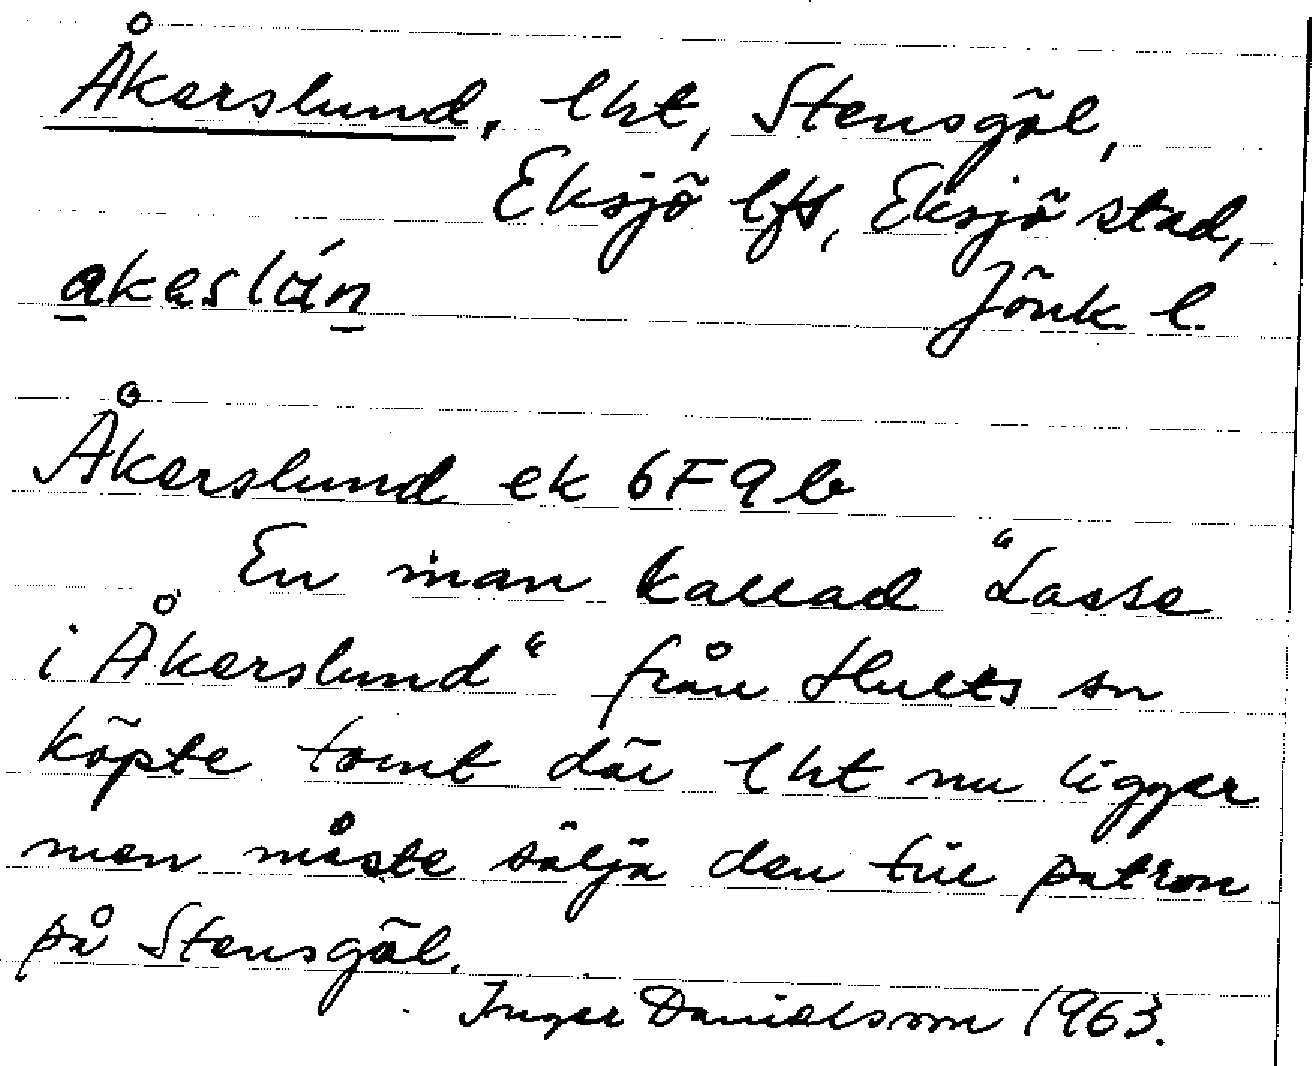 Åkerslund, lht, Stensgöl,
Eksjö lfs, Eksjö stad,
Jönk l.
åkaslún
Åkerslund ek 6F9b
En man kallad "Lasse
i Åkerslund" från Hults sn
köpte tomt där lht nu ligger
men måste sälja den till patron
på Stensgöl.
Inger Danielsson 1963.